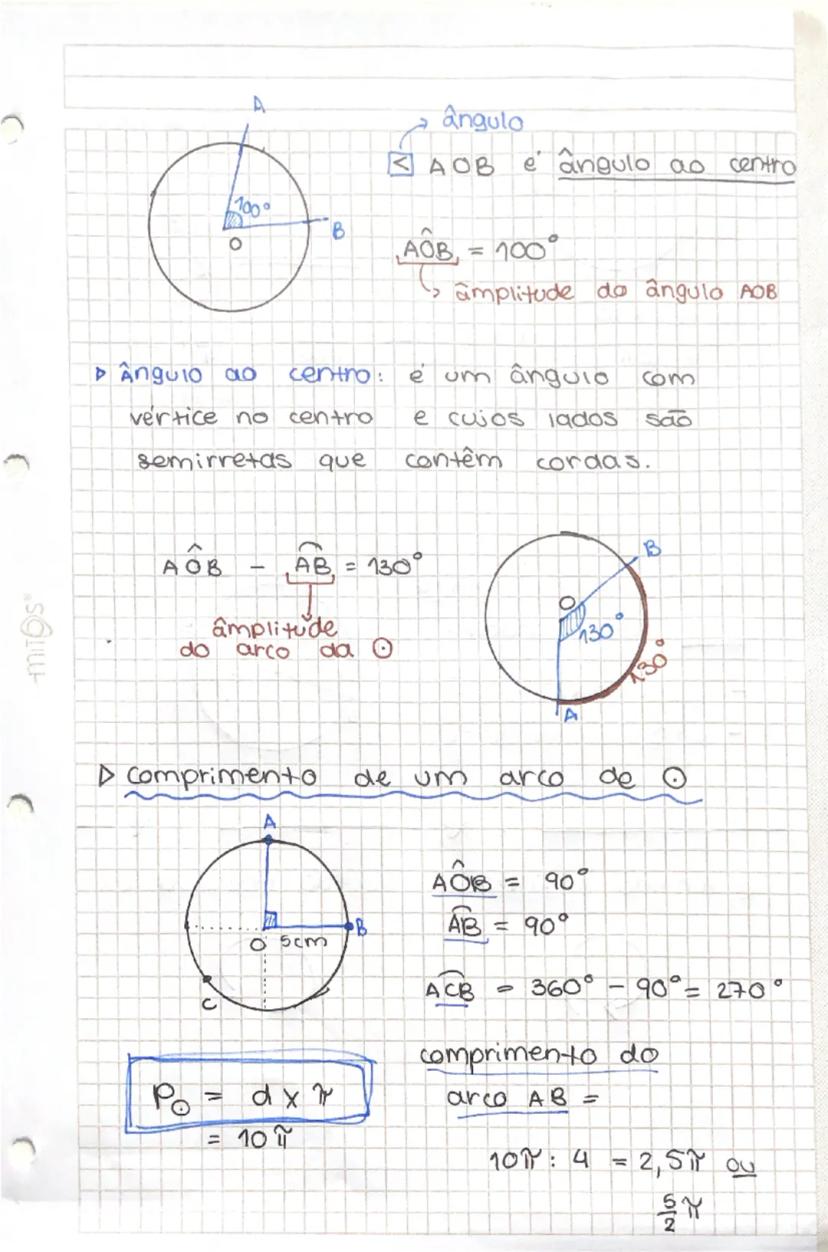 A
100°
B
O
→ ângulo
∢ AOB é ângulo ao centro
AÔB = 100°
↳ âmplitude do ângulo AOB
▷ Ângulo ao centro: é um ângulo com
vértice no centro e cujos lados são
semirretas que contêm cordas.
AÔB - A͡B = 130°
âmplitude
do arco da ⊙
B
O
130°
130°
A
mitos®
▷ comprimento de um arco de ⊙
A
O 5cm
B
C
AÔB = 90°
A͡B = 90°
AC͡B = 360° - 90° = 270°
P⊙ = d x π
= 10π
comprimento do
arco AB =
10π : 4 = 2,5π ou
5/2 π